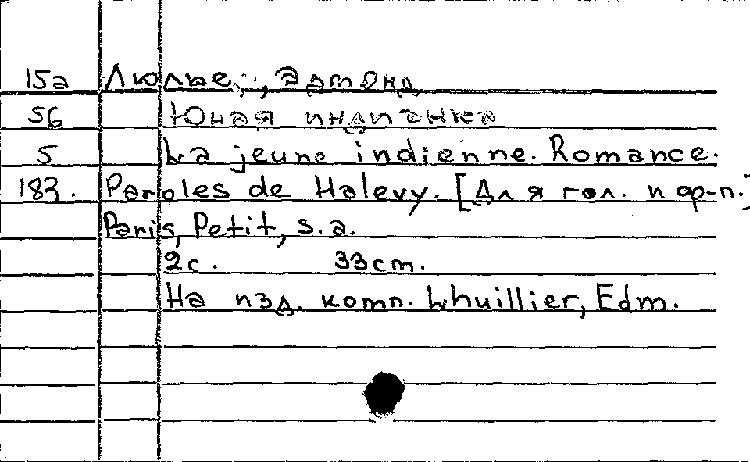 15а Люлье, Эдмонд
56 Юная индианка
5 La jeune indienne. Romance.
183. Paroles de Halevy. [Для гол. и ф-п.]
Paris, Petit, s.a.
2с. 33cm.
На изд. комп. Lhuillier, Edm.